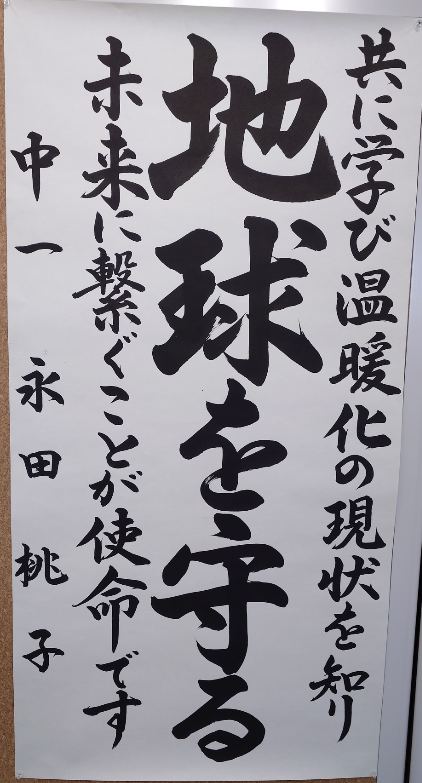 共に学び温暖化の現状を知り
地球を守る
未来に繋ぐことが使命です
中一 永田桃子